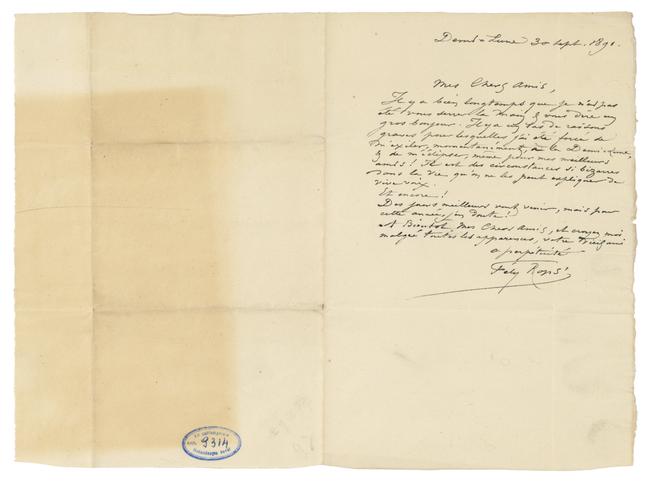 Demi-Lune 30 sept. 1891.
Mes Chers Amis,
Il y a bien longtemps que je n'ai pas
été vous serrer la main & vous dire un
gros bonjour. Il y a un tas de raisons
graves pour lesquelles j'ai été forcé de
m'exiler, momentanément, à la Demi-Lune,
& de m'éclipser, même pour mes meilleurs
amis! Il est des circonstances si bizarres
dans la vie qu'on ne les peut expliquer de
vive voix.
Et encore!
Des jours meilleurs vont venir, mais pour
cette année, j'en doute!
A Bientôt Mes Chers Amis, et croyez moi
malgré toutes les apparences, votre vieil ami
à perpétuité
Fély Rops
9314